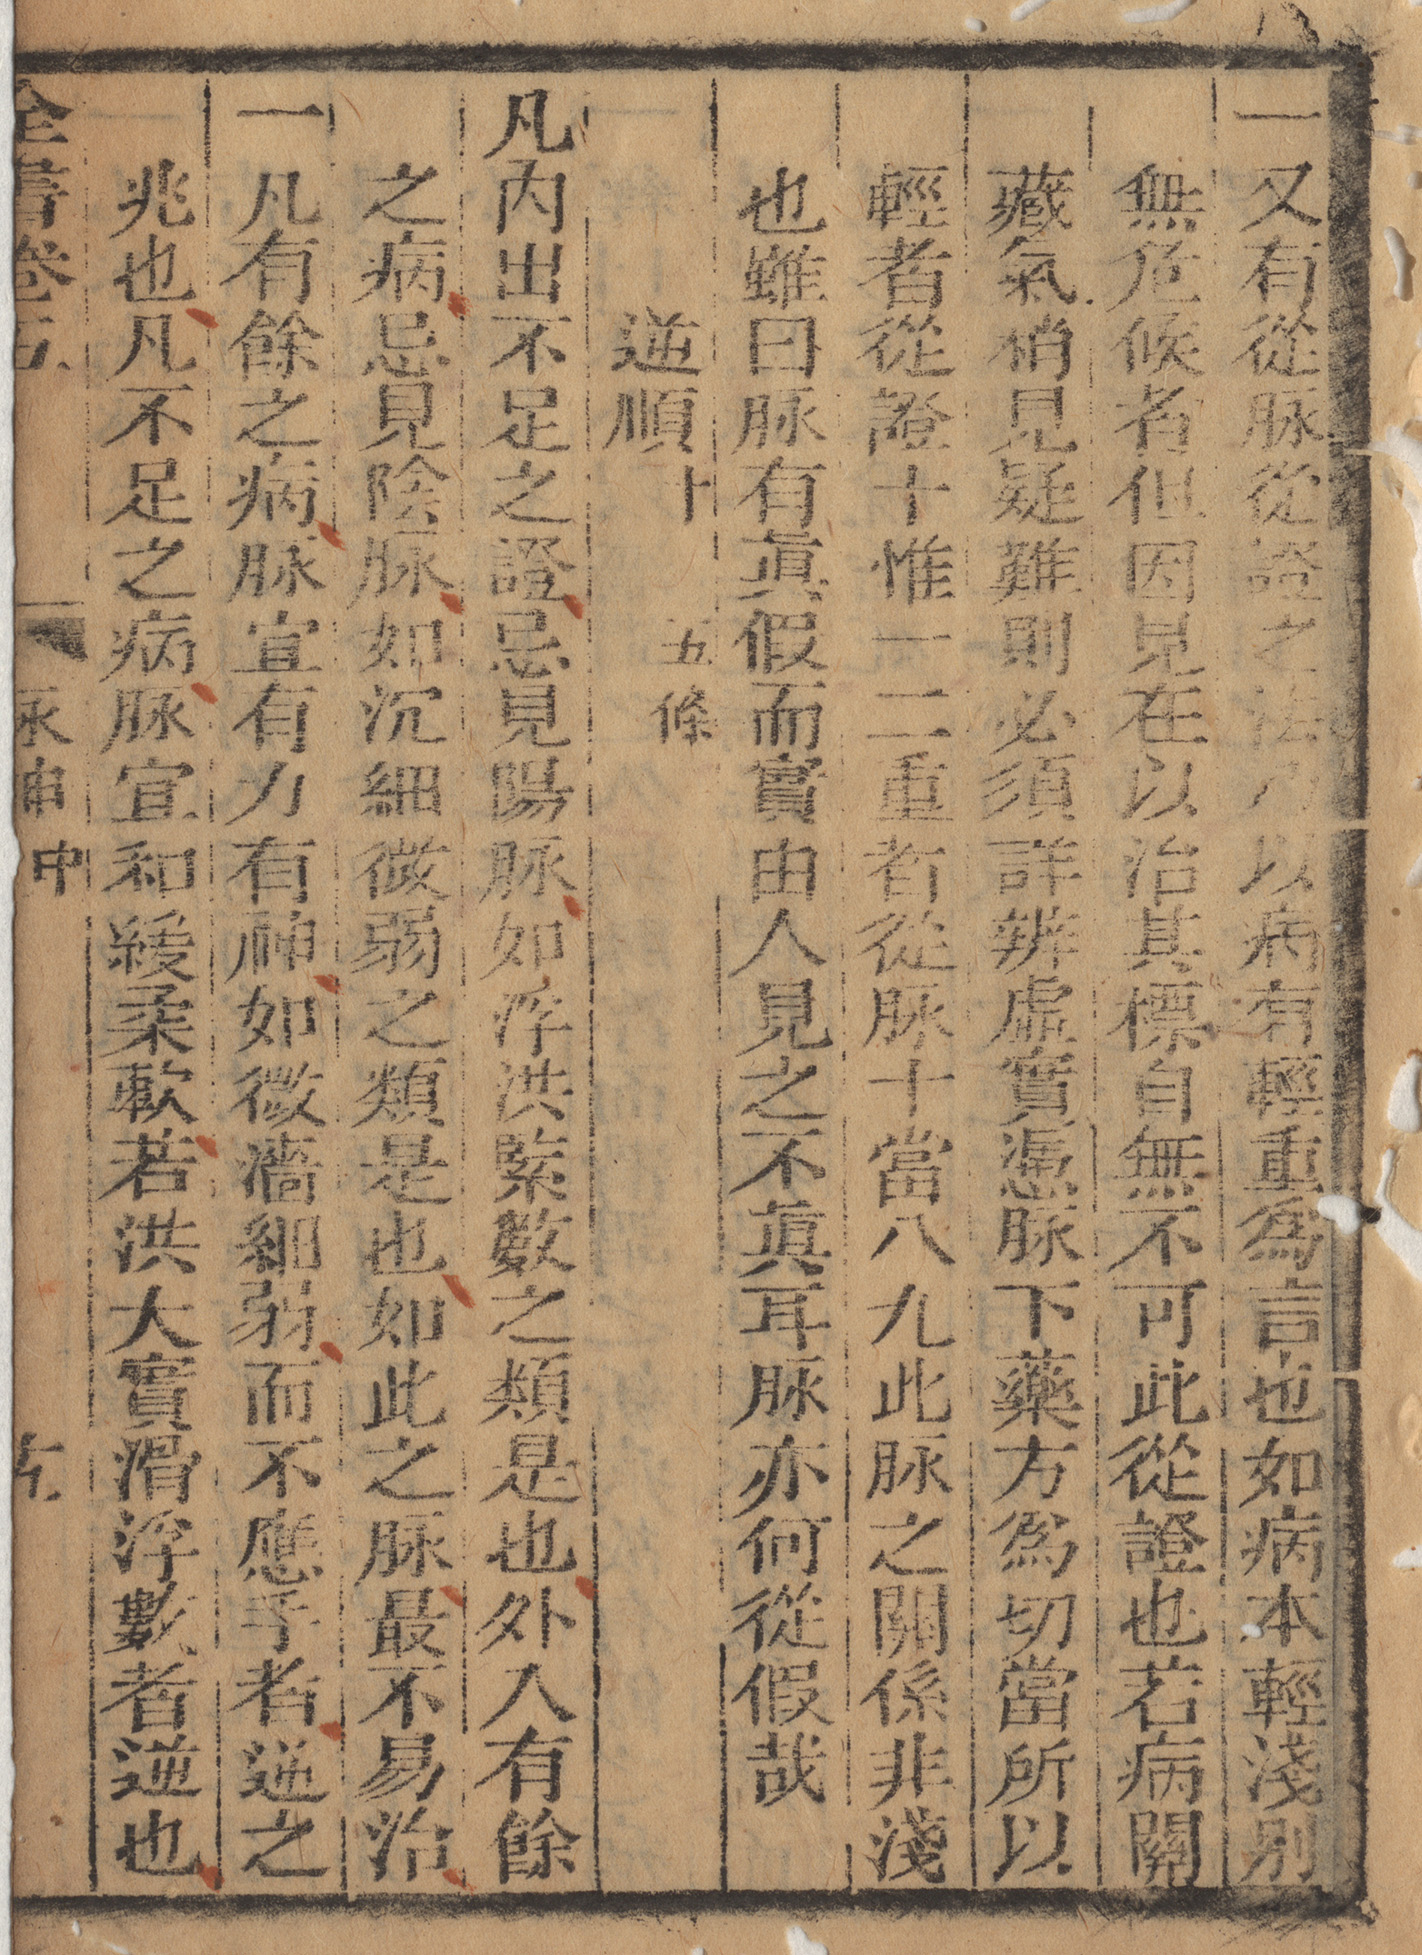 一又有從脉從證之法乃以病有輕重爲言也如病本輕淺别
無危候者但因見在以治其標自無不可此從證也若病關
藏氣稍見疑難則必須詳辨虛實憑脉下藥方爲切當所以
輕者從證十惟一二重者從脉十當八九此脉之關係非淺
也雖曰脉有眞假而實由人見之不眞耳脉亦何從假哉
逆順十五條
凡内出不足之證忌見陽脉如浮洪緊數之類是也外入有餘
之病忌見陰脉如沉細微弱之類是也如此之脉最不易治
一凡有餘之病脉宜有力有神如微濇細弱而不應手者逆之
兆也凡不足之病脉宜和緩柔軟若洪大實滑浮數者逆也
全書卷五 脉神中